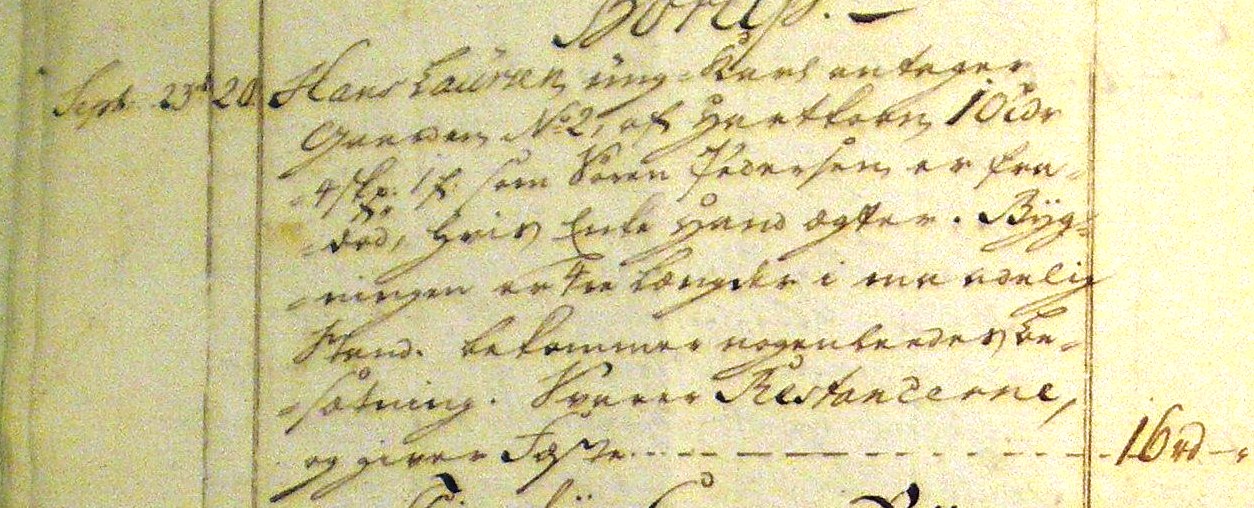 Sept: 23d 20. Hans Laursen, ung Karl antager
Gaarden No 2, af Hartkorn 10 tdr
4 skp. 1 f: som Søren Pedersen er fra-
-død, hvis Enke hand ægter. Byg-
-ningen er Tre Længder i maadelig
Stand. bekommer nogenledes Be-
-sætning. Svarer Restancerne,
og giver Fæste 16 rd